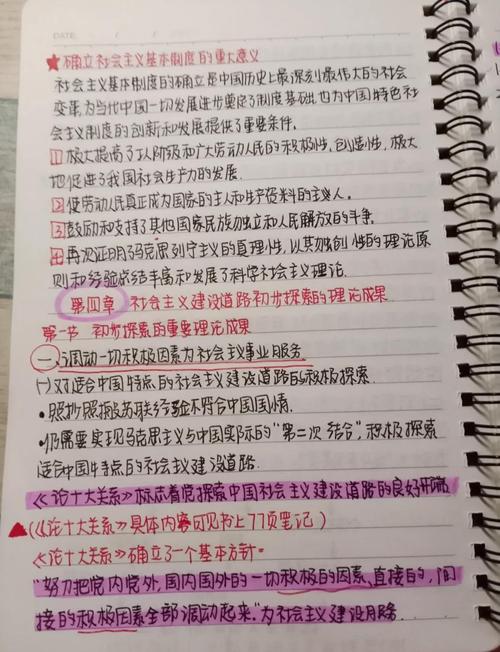 DATE: / /
★确立社会主义基本制度的重大意义
社会主义基本制度的确立是中国历史上最深刻最伟大的社会
变革,为当代中国一切发展进步奠定了制度基础,也为中国特色社
会主义制度的创新和发展提供了重要条件.
1 极大提高了工人阶级和广大劳动人民的积极性,创造性,极大
地促进了我国社会生产力的发展.
2 使劳动人民真正成为国家的主人和生产资料的主人.
3 鼓励和支持了其他国家民族独立和人民解放的斗争.
4 再次证明了马克思列宁主义的真理性,以其独创性的理论原
则和经验总结丰富和发展了科学社会主义理论.
第四章 社会主义建设道路初步探索的理论成果
第一节 初步探索的重要理论成果
一、调动一切积极因素为社会主义事业服务
(一)对适合中国特点的社会主义建设道路的积极探索
•照抄照搬苏联经验不符合中国国情.
•仍需要实现马克思主义与中国实际的"第二次结合",积极探索
适合中国特点的社会主义建设道路.
《论十大关系》标志着党探索中国社会主义建设道路的良好开端
▲(《论十大关系》具体内容可见书上77页笔记)
《论十大关系》确立了一个基本方针:
"努力把党内党外,国内国外的一切积极的因素,直接的,间
接的积极因素全部调动起来."为社会主义建设服务.